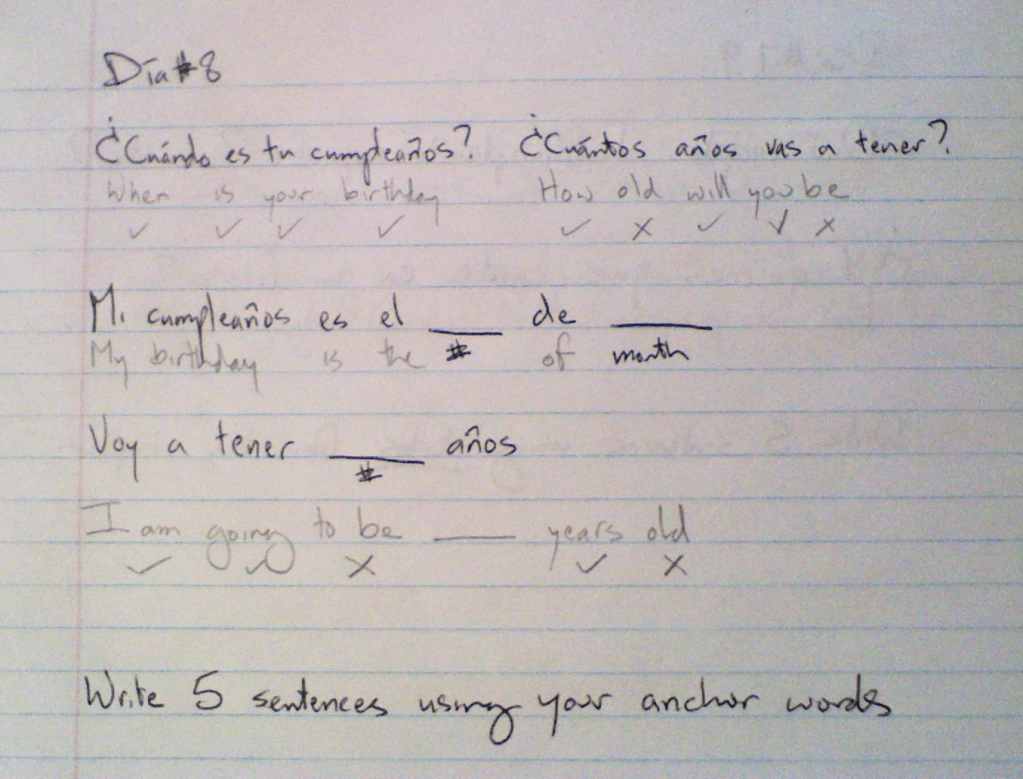 Día #8
¿Cuándo es tu cumpleaños? ¿Cuántos años vas a tener?
When is your birthday How old will you be
✓ ✓ ✓ ✓ ✓ X ✓ ✓ X
Mi cumpleaños es el ___ de ___
My birthday is the # of month
Voy a tener ___ años
#
I am going to be ___ years old
✓ ✓ X ✓ X
Write 5 sentences using your anchor words